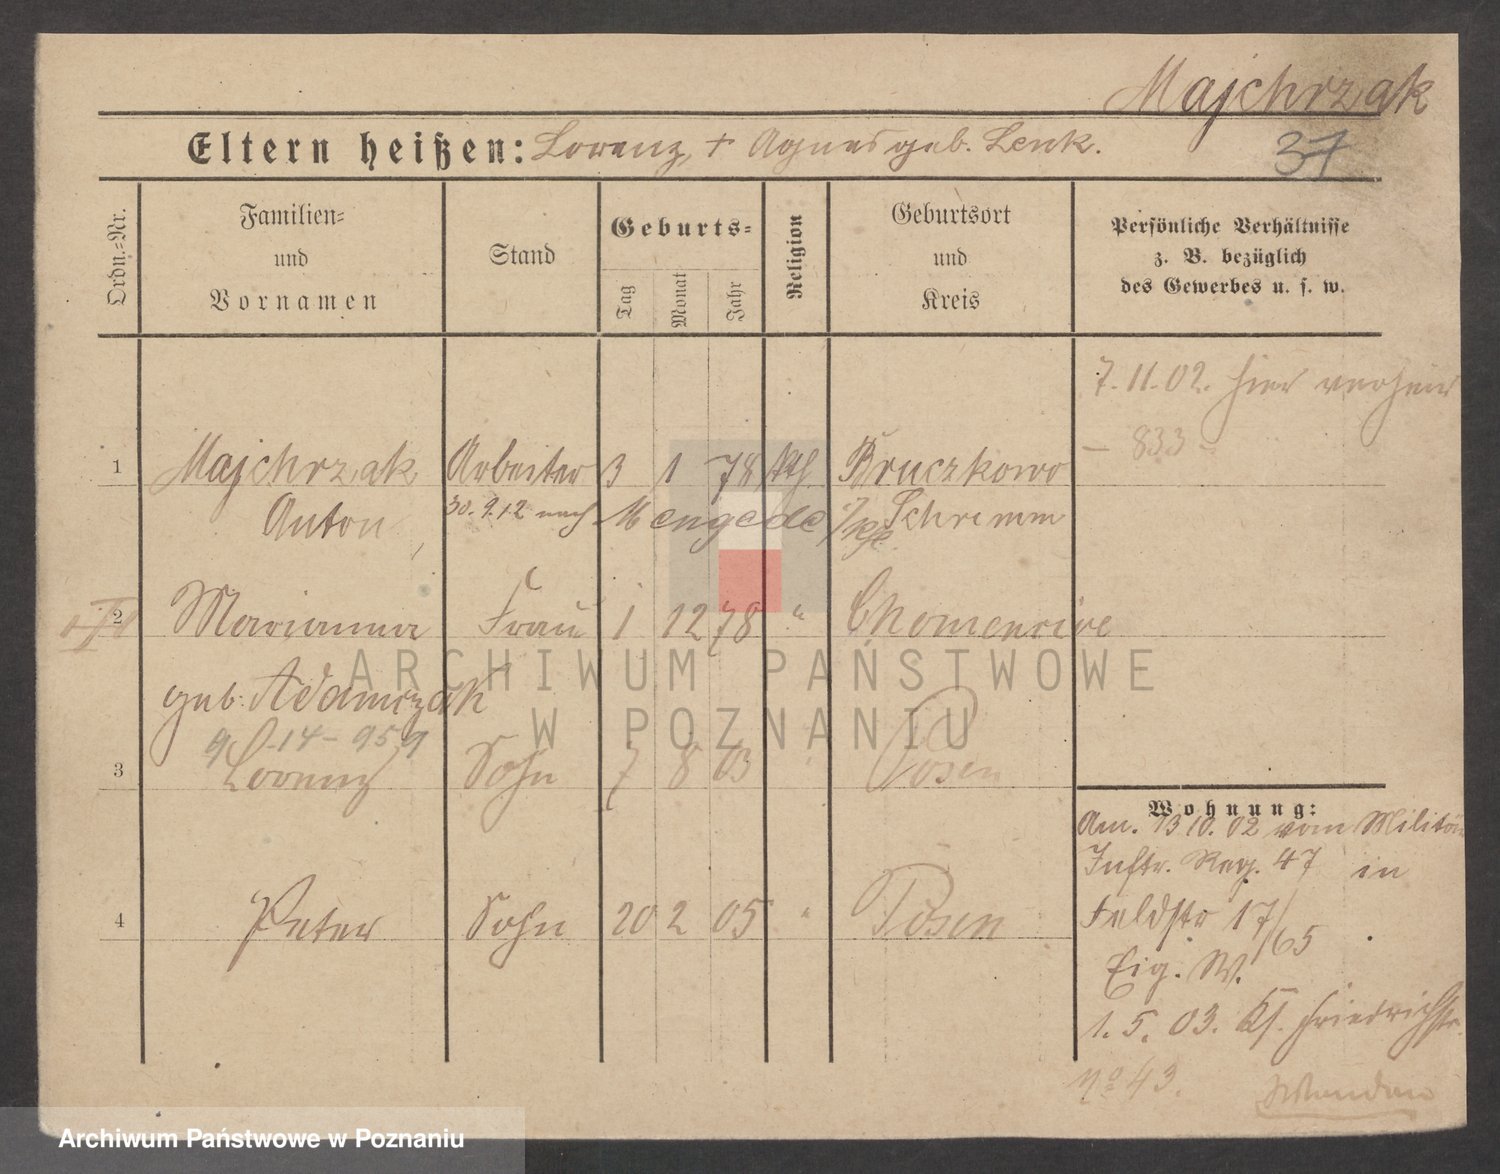 Majchrzak
37
Eltern heißen: Lorenz, + Agnes geb. Lenk.
Ordn.=Nr.
Familien=
und
Vornamen
Stand
Geburts=
Tag
Monat
Jahr
Religion
Geburtsort
und
Kreis
Persönliche Verhältnisse
z. B. bezüglich
des Gewerbes u. s. w.
7.11.02. hier
- 833 -
1 Majchrzak Arbeiter 3 1 78 kth. Bruczkowo
Anton 30.9.12 nach Mengede Schrimm
2 Marianna Frau 1 12 78 "
geb. Adamczak
14-95
3 Lorenz Sohn 7 8 03 " Posen
4 Peter Sohn 20 2 05 " Posen
Wohnung:
Am. 13 10. 02 vom Militär
Inftr. Reg. 47 in
Feldstr 17/65
Eig. W.
1. 5. 03. Kl. Friedrichstr.
No 43.
ARCHIWUM PAŃSTWOWE
W POZNANIU
Archiwum Państwowe w Poznaniu